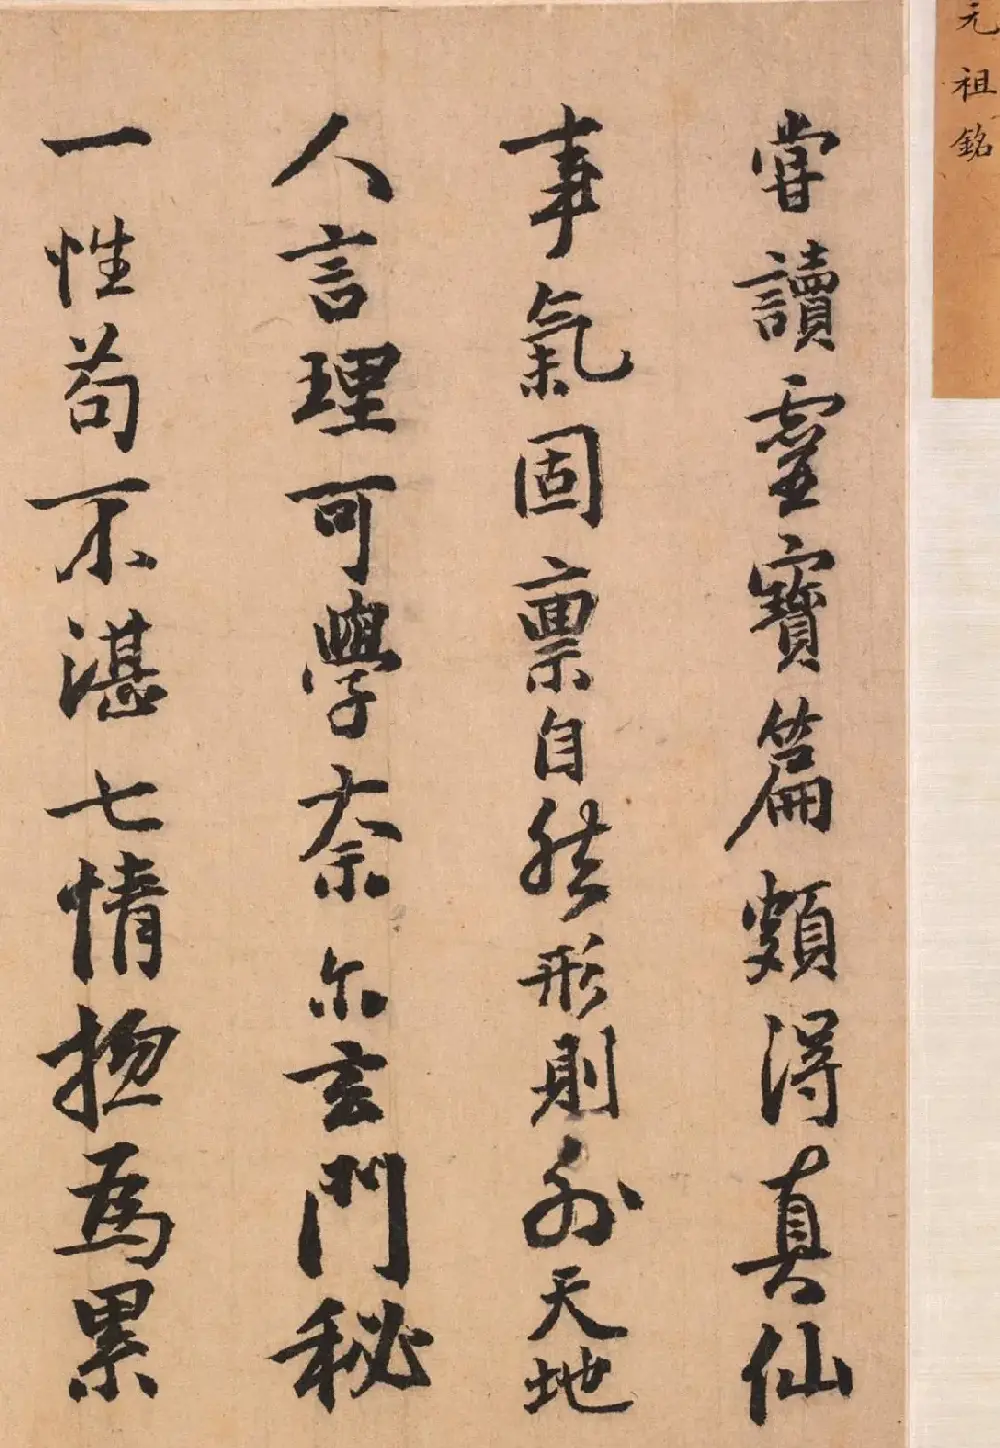 元祖銘
嘗讀靈寶篇頗得真仙
事氣固禀自然形則外天地
人言理可學奈尓玄門秘
一性苟不湛七情揔爲累